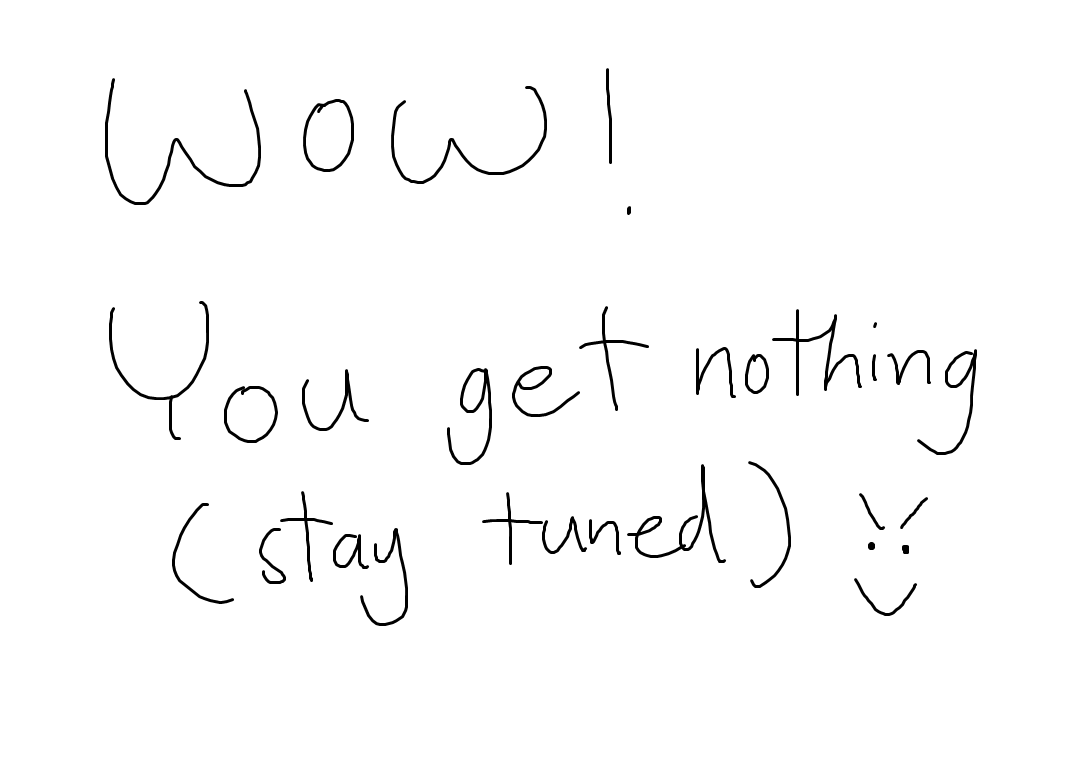 Wow!
You get nothing
(stay tuned)